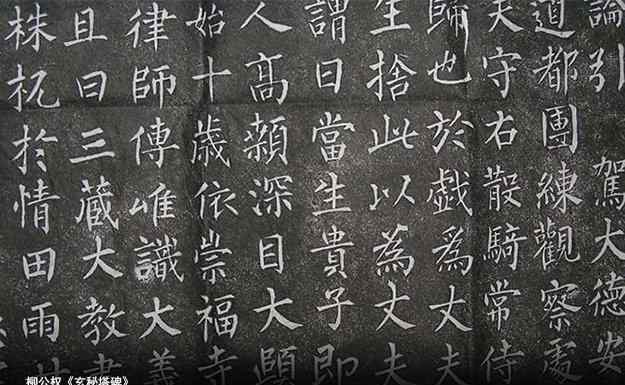 論引 駕大德安
道都團練觀察處
夫守右散騎常侍
歸也於戲為丈夫
生捨此以為丈夫
謂曰當生貴子即
人高顙深目大頤
始十歲依崇福寺
律師傳唯識大義
且曰三藏大教
株杌於情田雨
柳公权《玄秘塔碑》